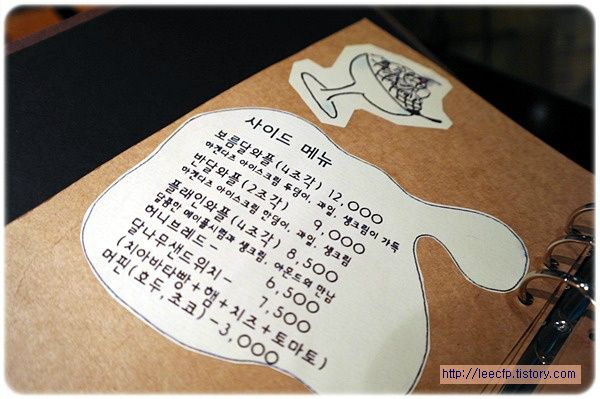 사이드 메뉴
보름달와플(4조각) 12,000
하겐다즈 아이스크림 두덩이, 과일, 생크림이 가득
반달와플(2조각) 9,000
하겐다즈 아이스크림 한덩이, 과일, 생크림
플래인와플(4조각) 8,500
달콤한 메이플시럽과 생크림, 아몬드와 만남
허니브레드 - 6,500
달나무샌드위치- 7,500
(치아바타빵+햄+치즈+토마토)
머핀(호두,초코) -3,000
http://leecfp.tistory.com